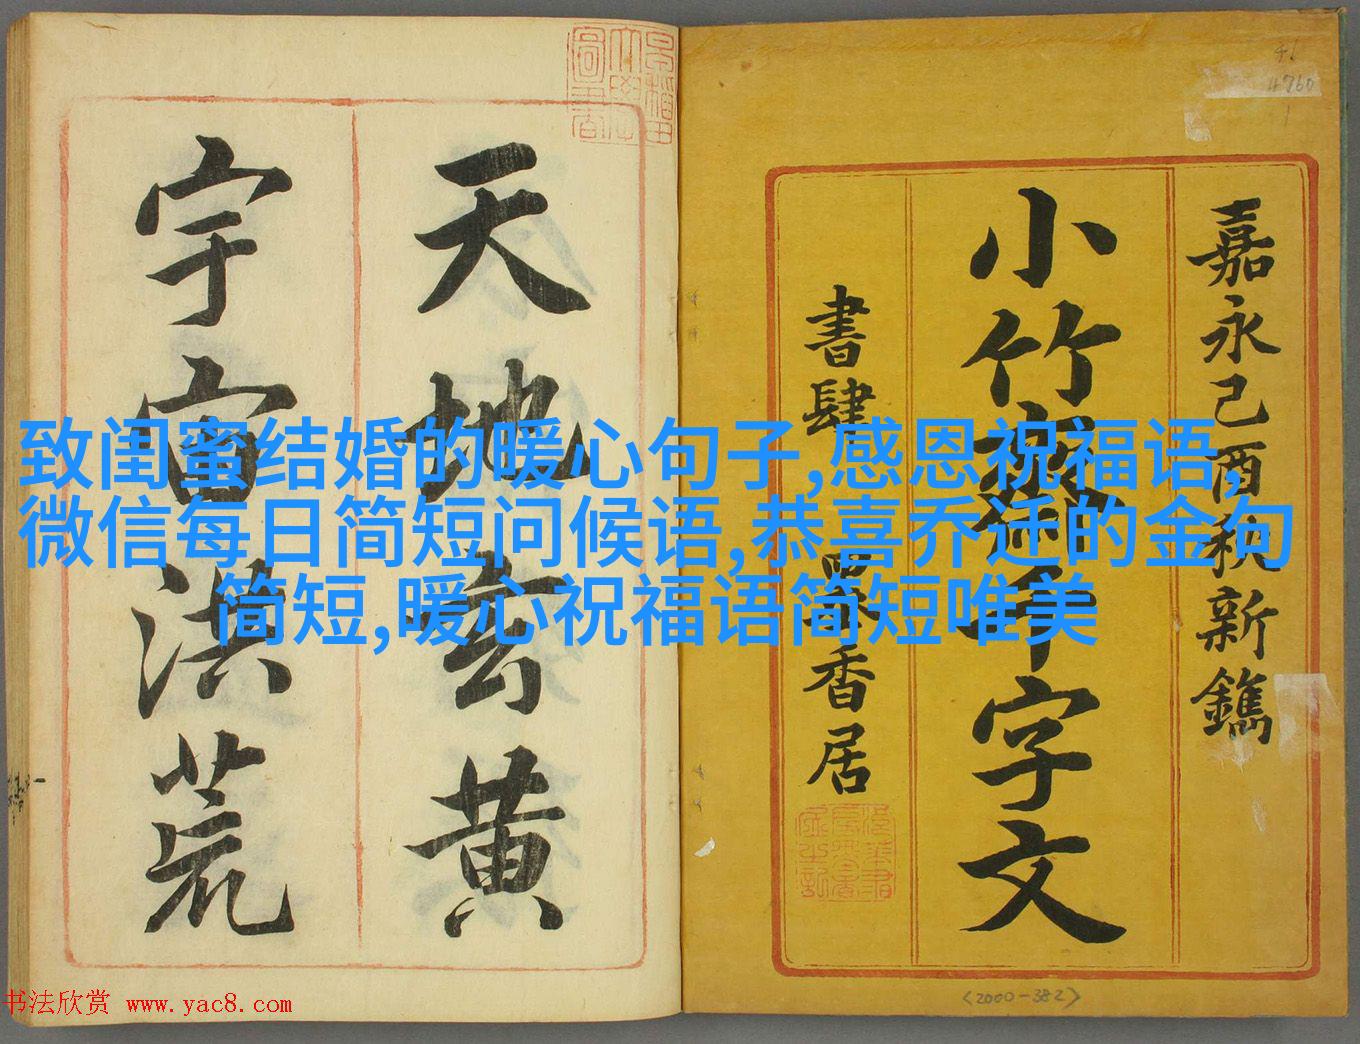 嘉永己酉秋新鐫
小竹齋千字文
書肆 墨香居
天地玄黃
宇宙洪荒
致闺蜜结婚的暖心句子,感恩祝福语,
微信每日简短问候语,恭喜乔迁的金句
简短,暖心祝福语简短唯美
46
4760
<2000-382>
书法欣赏 www.yac8.com